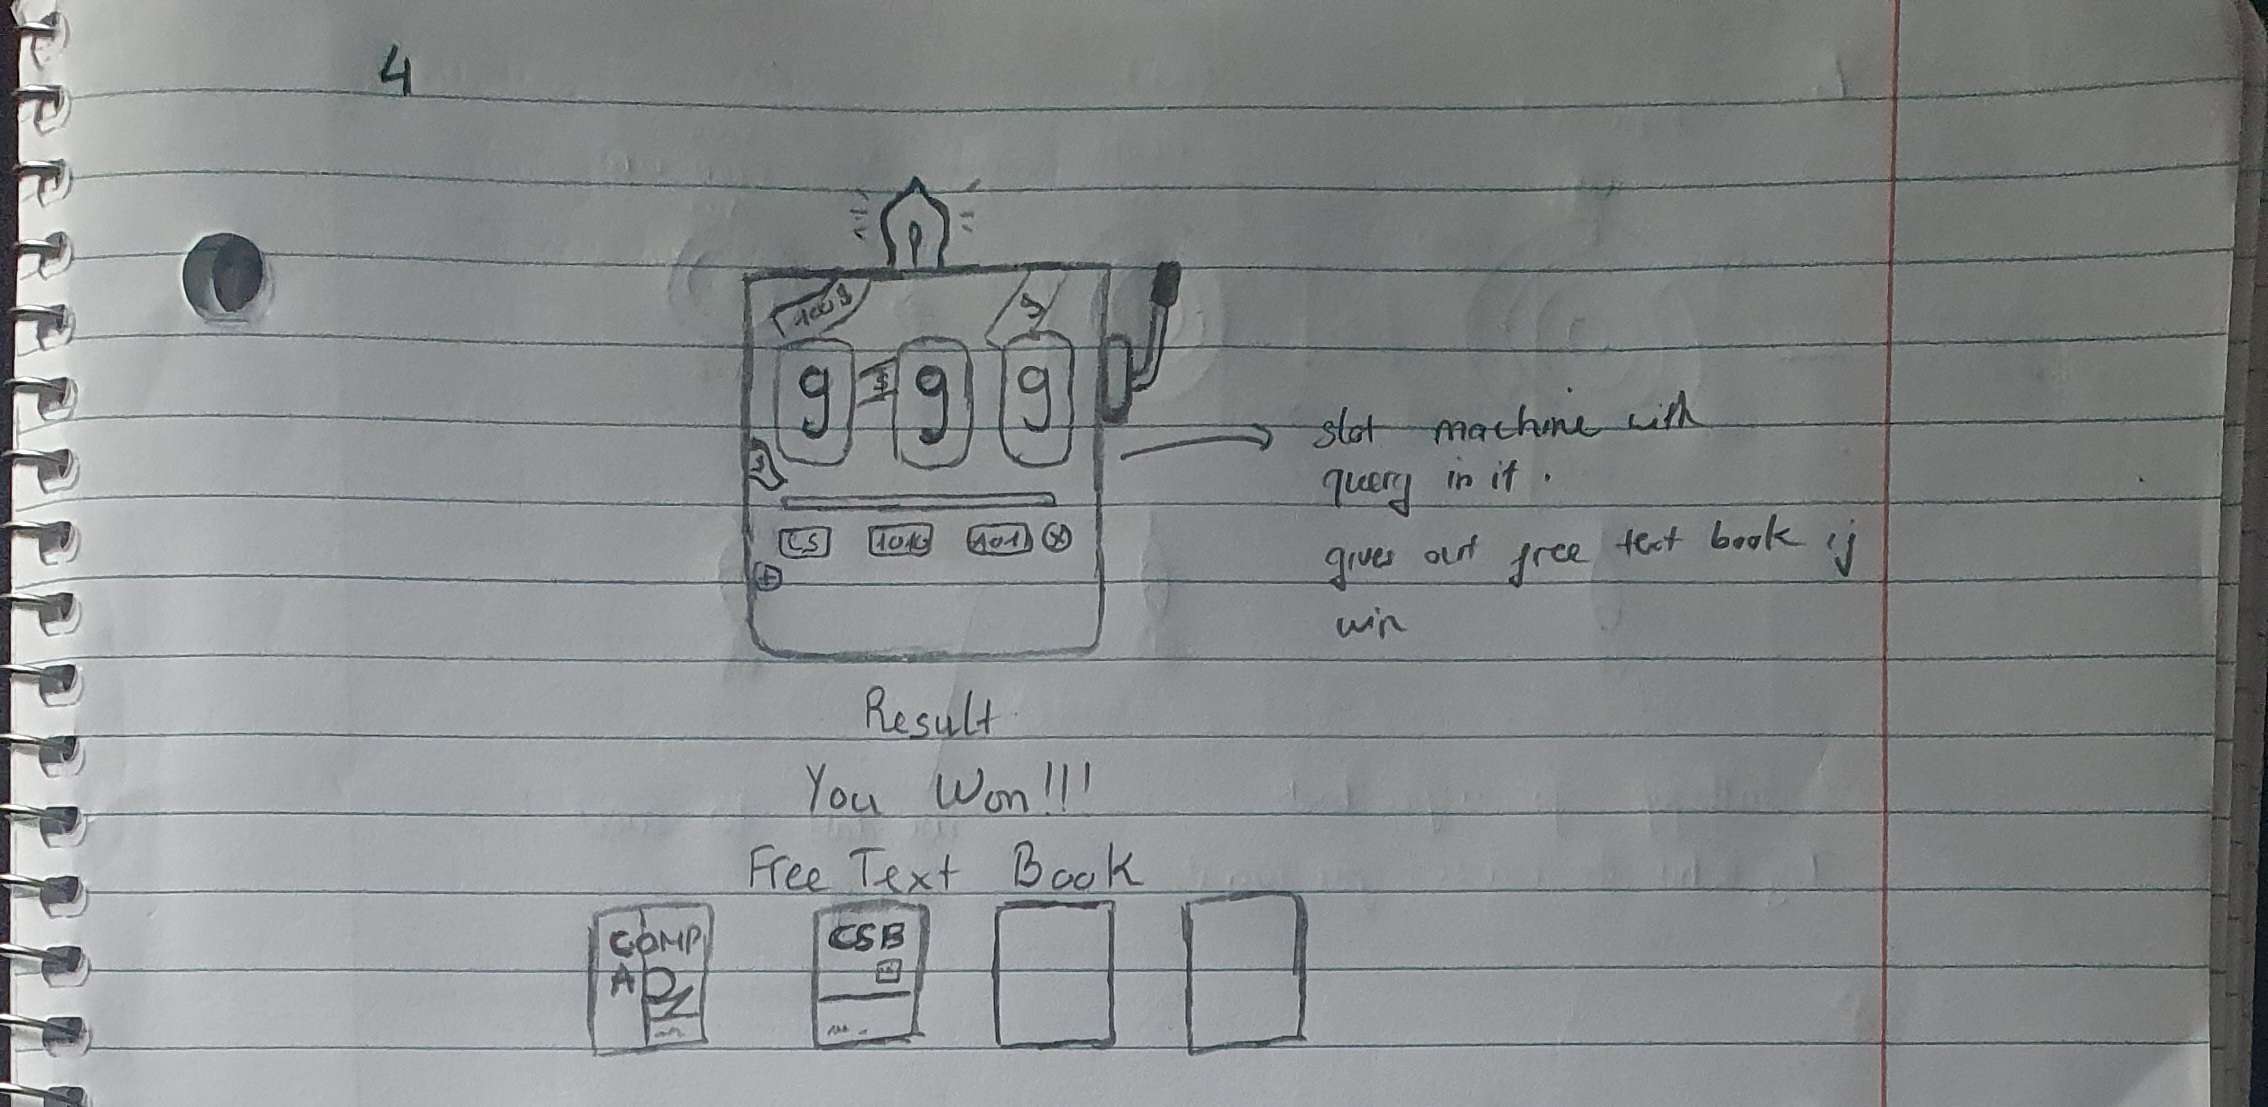 4
100$
$
9 $ 9 9
$
CS 1010 101
slot machine with
query in it.
gives out free text book if
win
Result
You Won!!!
Free Text Book
COMP CSB
A